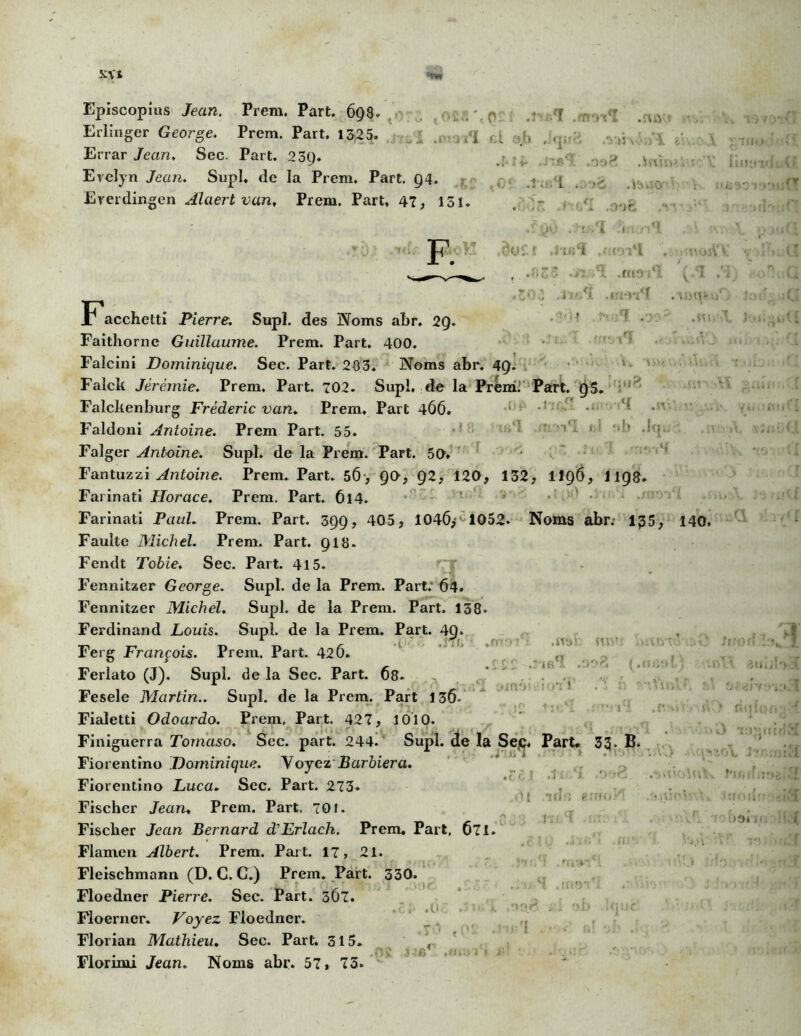 XVI
Episcopius Jean. Prem. Part. 698.
Erlinger George. Prem. Part. 1325.
Errar Jean. Sec. Part. 239.
Evelyn Jean. Supl. de la Prem. Part. 94.
Everdingen Alaert van, Prem. Part. 47, 131.
F.
Facchetti Pierre. Supl. des Noms abr. 29.
Faithorne Guillaume. Prem. Part. 400.
Falcini Dominique. Sec. Part. 283. Noms abr. 49.
Falck Jérémie. Prem. Part. 702. Supl. de la Prem. Part. 95.
Falckenburg Fréderic van. Prem. Part 466.
Faldoni Antoine. Prem Part. 55.
Falger Antoine. Supl. de la Prem. Part. 50.
Fantuzzi Antoine. Prem. Part. 56, 90, 92, 120, 132, 1196, 1198.
Farinati Horace. Prem. Part. 614.
Farinati Paul. Prem. Part. 399, 405, 1046, 1052. Noms abr. 135, 140.
Faulte Michel. Prem. Part. 918.
Fendt Tobie. Sec. Part. 415.
Fennitzer George. Supl. de la Prem. Part. 64.
Fennitzer Michel. Supl. de la Prem. Part. 138.
Ferdinand Louis. Supl. de la Prem. Part. 49.
Ferg François. Prem. Part. 426.
Ferlato (J). Supl. de la Sec. Part. 68.
Fesele Martin.. Supl. de la Prem. Part 136.
Fialetti Odoardo. Prem. Part. 427, 1010.
Finiguerra Tomaso. Sec. part. 244. Supl. de la Sec. Part. 33. B.
Fiorentino Dominique. Voyez Barbiera.
Fiorentino Luca. Sec. Part. 273.
Fischer Jean, Prem. Part. 701.
Fischer Jean Bernard d'Erlach. Prem. Part. 671.
Flamen Albert. Prem. Part. 17, 21.
Fleischmann (D. C. C.) Prem. Part. 330.
Floedner Pierre. Sec. Part. 367.
Floerner. Voyez Floedner.
Florian Mathieu. Sec. Part. 315.
Florimi Jean. Noms abr. 57, 73.